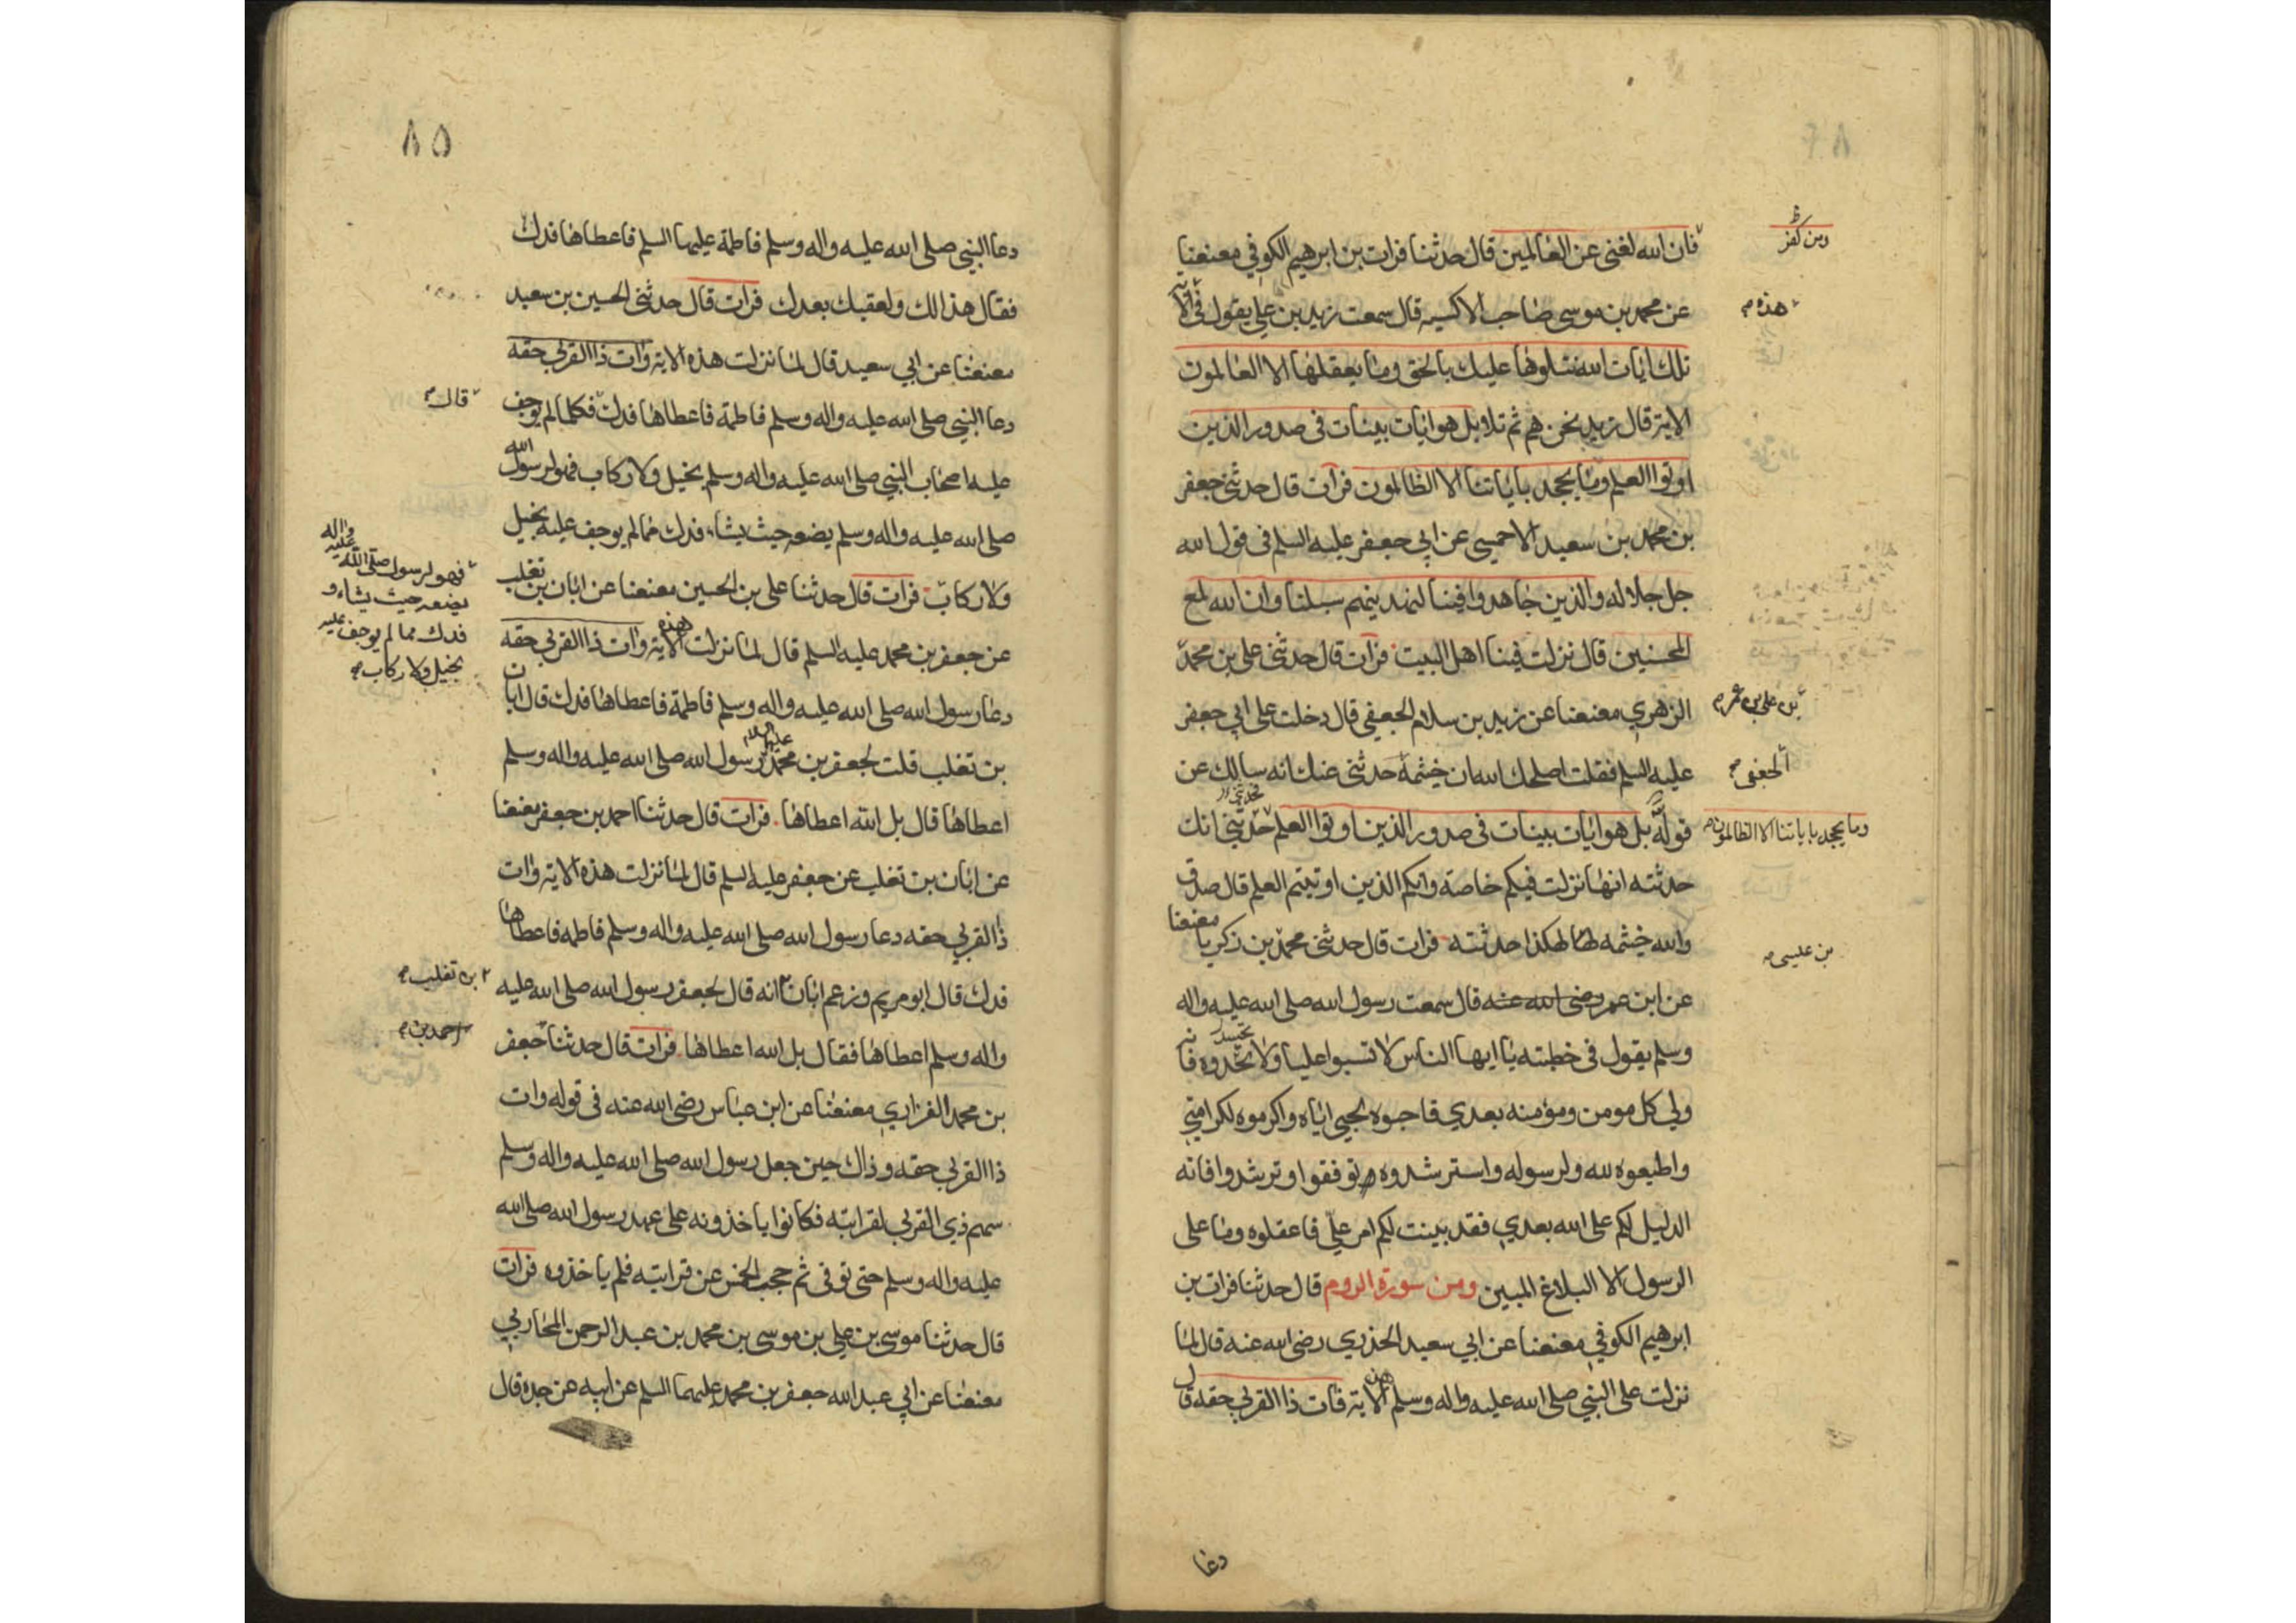 ومن كفر
فان الله لغنى عن العالمين قال حدثنا فرات بن ابرهيم الكوفي معنعنا
عن محمد بن موسى صاحب الاكسيه قال سمعت زيد بن علي يقول في الاية
هذه
تلك ايات الله نتلوها عليك بالحق وما يعقلها الا العالمون
الاية قال زيد نحن هم ثم تلا وبل هو ايات بينات في صدور الذين
اوتوا العلم وما يجحد باياتنا الا الظالمون فرات قال حدثني جعفر
بن محمد بن سعيد الاحمسى عن ابي جعفر عليه السلم في قول الله
جل جلاله والذين جاهدوا فينا لنهدينهم سبلنا وان الله لمع
المحسنين قال نزلت فينا اهل البيت فرات قال حدثنى على بن محمد
بن علي بن عمر
الزهري معنعنا عن زيد بن سلام الجعفي قال دخلت على ابي جعفر
عليه السلم فقلت اصلحك الله ان خيثمة حدثنى عنك انه سالك عن
الجعفى
قوله بل هو ايات بينات في صدور الذين اوتوا العلم حدثني انك
وما يجحد باياتنا الا الظالمون
حدثته انها نزلت فيكم خاصة وانكم الذين اوتيتم العلم قال صدق
والله خيثمه لها لهكذا حدثته فرات قال حدثنى محمد بن زكريا معنعنا
بن عليسى
عن ابن عمر رضى الله عنه قال سمعت رسول الله صلى الله عليه واله
وسلم يقول في خطبته يا ايها الناس لا تسبوا عليا ولا تحدوه فانه
ولي كل مومن ومؤمنه بعدي فاحبوه لحبي اياه واكرموه لكرامتي
واطيعوه لله ولرسوله واسترشدوه توفقوا وترشدوا فانه
الدليل لكم على الله بعدي فقد بينت لكم امر علي فاعقلوه وما على
الرسول الا البلاغ المبين ومن سورة الروم قال حدثنا فرات بن
ابرهيم الكوفي معنعنا عن ابي سعيد الخدري رضى الله عنه قال لما
نزلت على النبي صلى الله عليه واله وسلم هذه الاية فات ذا القربى حقه قال
دعا
٨٥
دعا النبي صلى الله عليه واله وسلم فاطمة عليها السلم فاعطاها فدك
فقال هذا لك ولعقبك بعدك فرات قال حدثنى الحسين بن سعيد
معنعنا عن ابي سعيد قال لما نزلت هذه الاية وات ذا القربى حقه
دعا النبي صلى الله عليه واله وسلم فاطمة فاعطاها فدك فكلما لم يوجف
قال
عليه اصحاب النبي صلى الله عليه واله وسلم بخيل ولا ركاب فهو لرسول الله
صلى الله عليه واله وسلم يضعه حيث يشاء فدك مما لم يوجف عليه بخيل
فهو لرسول صلى الله عليه واله
يضعه حيث يشاء و
فدك مما لم يوجف عليه
بخيل ولا ركاب
ولا ركاب فرات قال حدثنا على بن الحسين معنعنا عن ابان بن تغلب
عن جعفر بن محمد عليه السلم قال لما نزلت هذه الاية وات ذا القربى حقه
دعا رسول الله صلى الله عليه واله وسلم فاطمة فاعطاها فدك قال ابان
بن تغلب قلت لجعفر بن محمد عليهما السلام رسول الله صلى الله عليه واله وسلم
اعطاها قال بل الله اعطاها فرات قال حدثنا احمد بن جعفر معنعنا
عن ابان بن تغلب عن جعفر عليه السلم قال لما نزلت هذه الاية وات
ذا القربى حقه دعا رسول الله صلى الله عليه واله وسلم فاطمه فاعطاها
فدك قال ابو مريم وزعم ابان انه قال لجعفر رسول الله صلى الله عليه
بن تغلب
واله وسلم اعطاها فقال بل الله اعطاها فرات قال حدثنا جعفر
احمد بن
بن محمد الفزاري معنعنا عن ابن عباس رضى الله عنه في قوله وات
ذا القربى حقه وذاك حين جعل رسول الله صلى الله عليه واله وسلم
سهم ذي القربى لقرابته فكانوا ياخذونه على عهد رسول الله صلى الله
عليه واله وسلم حتى توفى ثم حجب الخمس عن قرابته فلم ياخذوه فرات
قال حدثنا موسى بن علي بن موسى بن محمد بن عبد الرحمن المحاربي
معنعنا عن ابي عبد الله جعفر بن محمد عليهما السلم عن ابيه عن جده قال